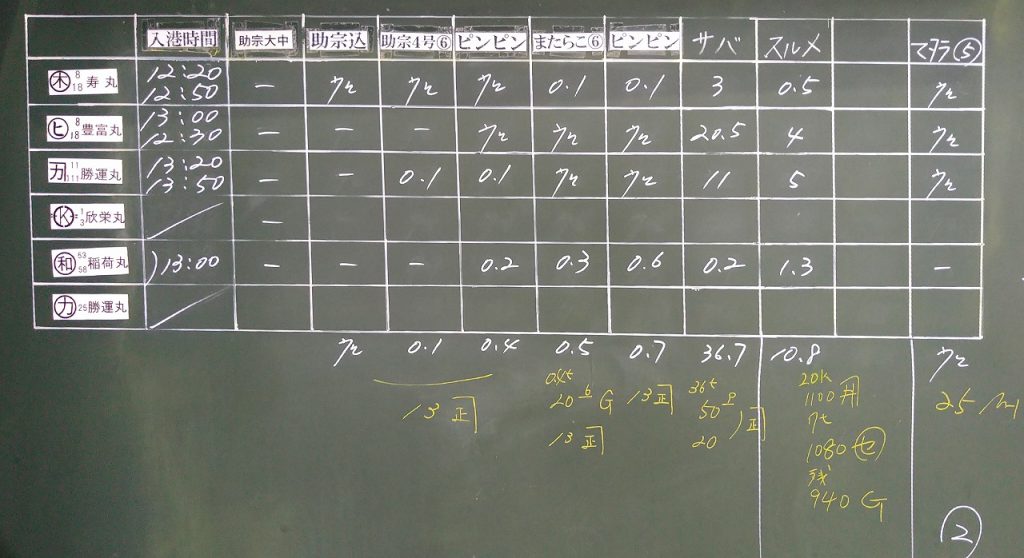 入港時間 助宗大中 助宗込 助宗4号⑥ ピンピン またらこ⑥ ピンピン サバ スルメ マタラ⑤
㊍ 8 18 寿丸 12:20 12:50 ー ケ ケ ケ 0.1 0.1 3 0.5 ケ
㋪ 8 18 豊富丸 13:00 12:30 ー ー ー ケ ケ ケ 20.5 4 ケ
11 111 勝運丸 13:20 13:50 ー ー 0.1 0.1 ケ ケ 11 5 ケ
Ⓚ 1 3 欣栄丸 ー
和 53 58 稲荷丸 13:00 ー ー ー 0.2 0.3 0.6 0.2 1.3 ー
㋕ 25 勝運丸
ケ 0.1 0.4 0.5 0.7 36.7 10.8 ケ
13 正
0.4t
20 6 G
13 正
13 正
36t
50
20
正
20K
1100
1080 ㋝
残
940 G
25
②